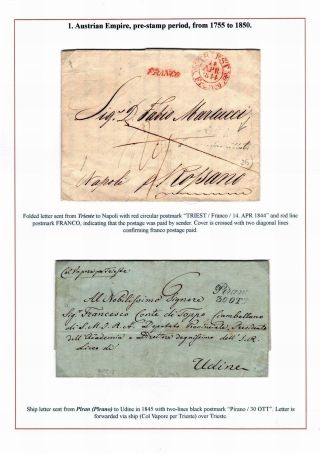 1. Austrian Empire, pre-stamp period, from 1755 to 1850.
FRANCO
TRIEST
14
APR
1844
FRANCO
Sig. D. Fabio Martucci
Napoli Rossano
Folded letter sent from Trieste to Napoli with red circular postmark "TRIEST / Franco / 14. APR.1844" and red line
postmark FRANCO, indicating that the postage was paid by sender. Cover is crossed with two diagonal lines
confirming franco postage paid.
Col Vapore per Trieste
Pirano
30 OTT
Al Nobilissimo Signore
Sig. Francesco Conte di Toppo Ciambellano
di S. M. I. R. A. Deputato Provinciale Presidente
dell'Accademia e Direttore degnissimo dell' I. R.
Liceo di
Udine
Ship letter sent from Piran (Pirano) to Udine in 1845 with two-lines black postmark "Pirano / 30 OTT". Letter is
forwarded via ship (Col Vapore per Trieste) over Trieste.